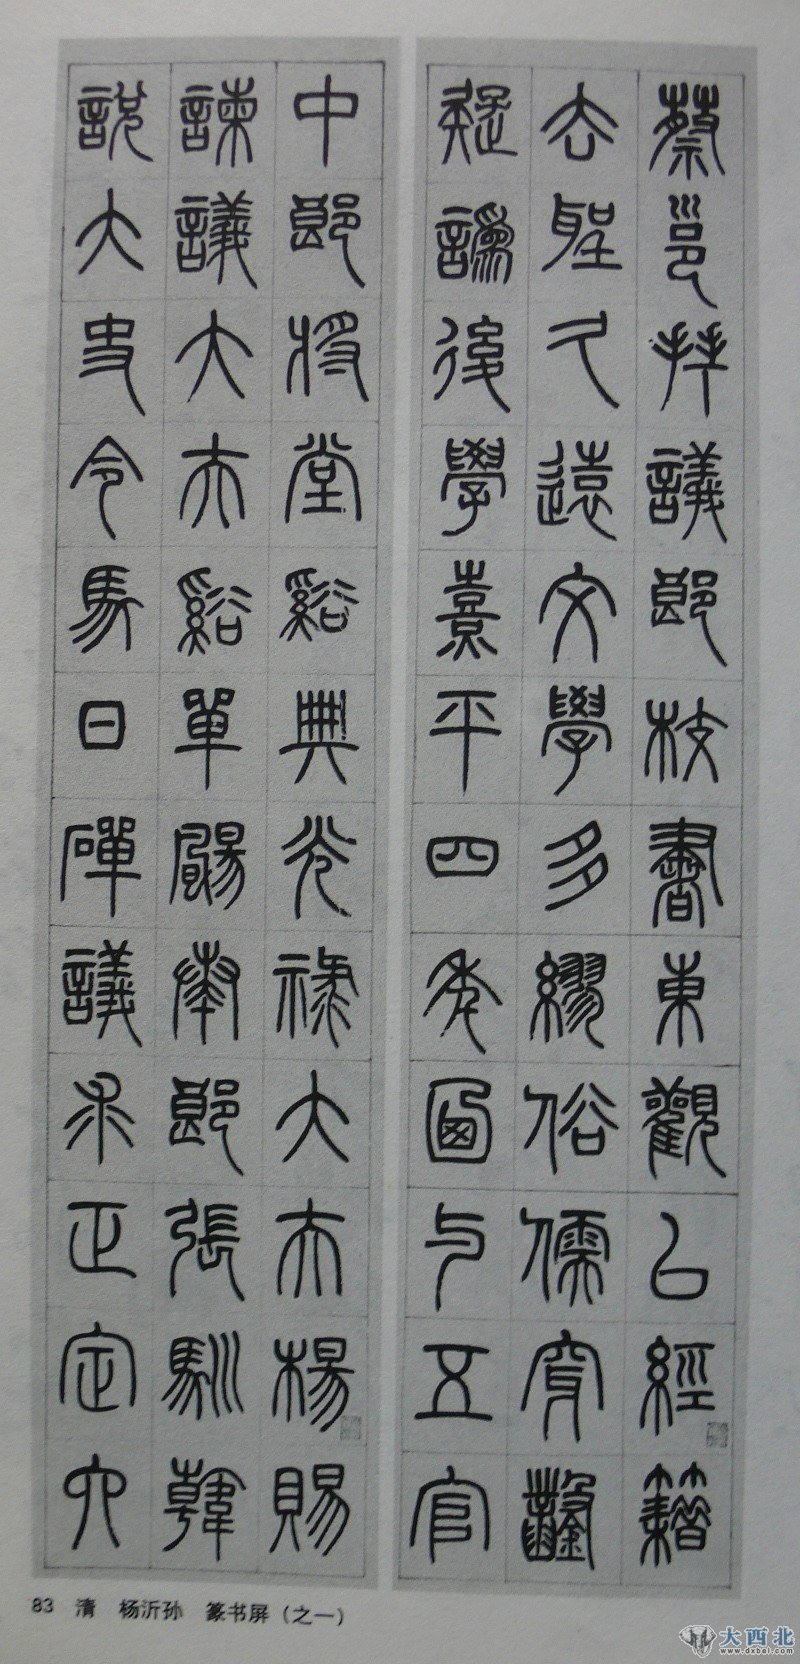 蔡邕拜議郎校書東觀以經籍
去聖久遠文學多繆俗儒穿鑿
疑誤後學熹平四年迺与五官
中郎將堂谿典光祿大夫楊賜
諫議大夫谿單颺奉郎張馴韓
說大史令馬日磾議求正定六
83 清 杨沂孙 篆书屏(之一)
大西北
www.dxbei.com